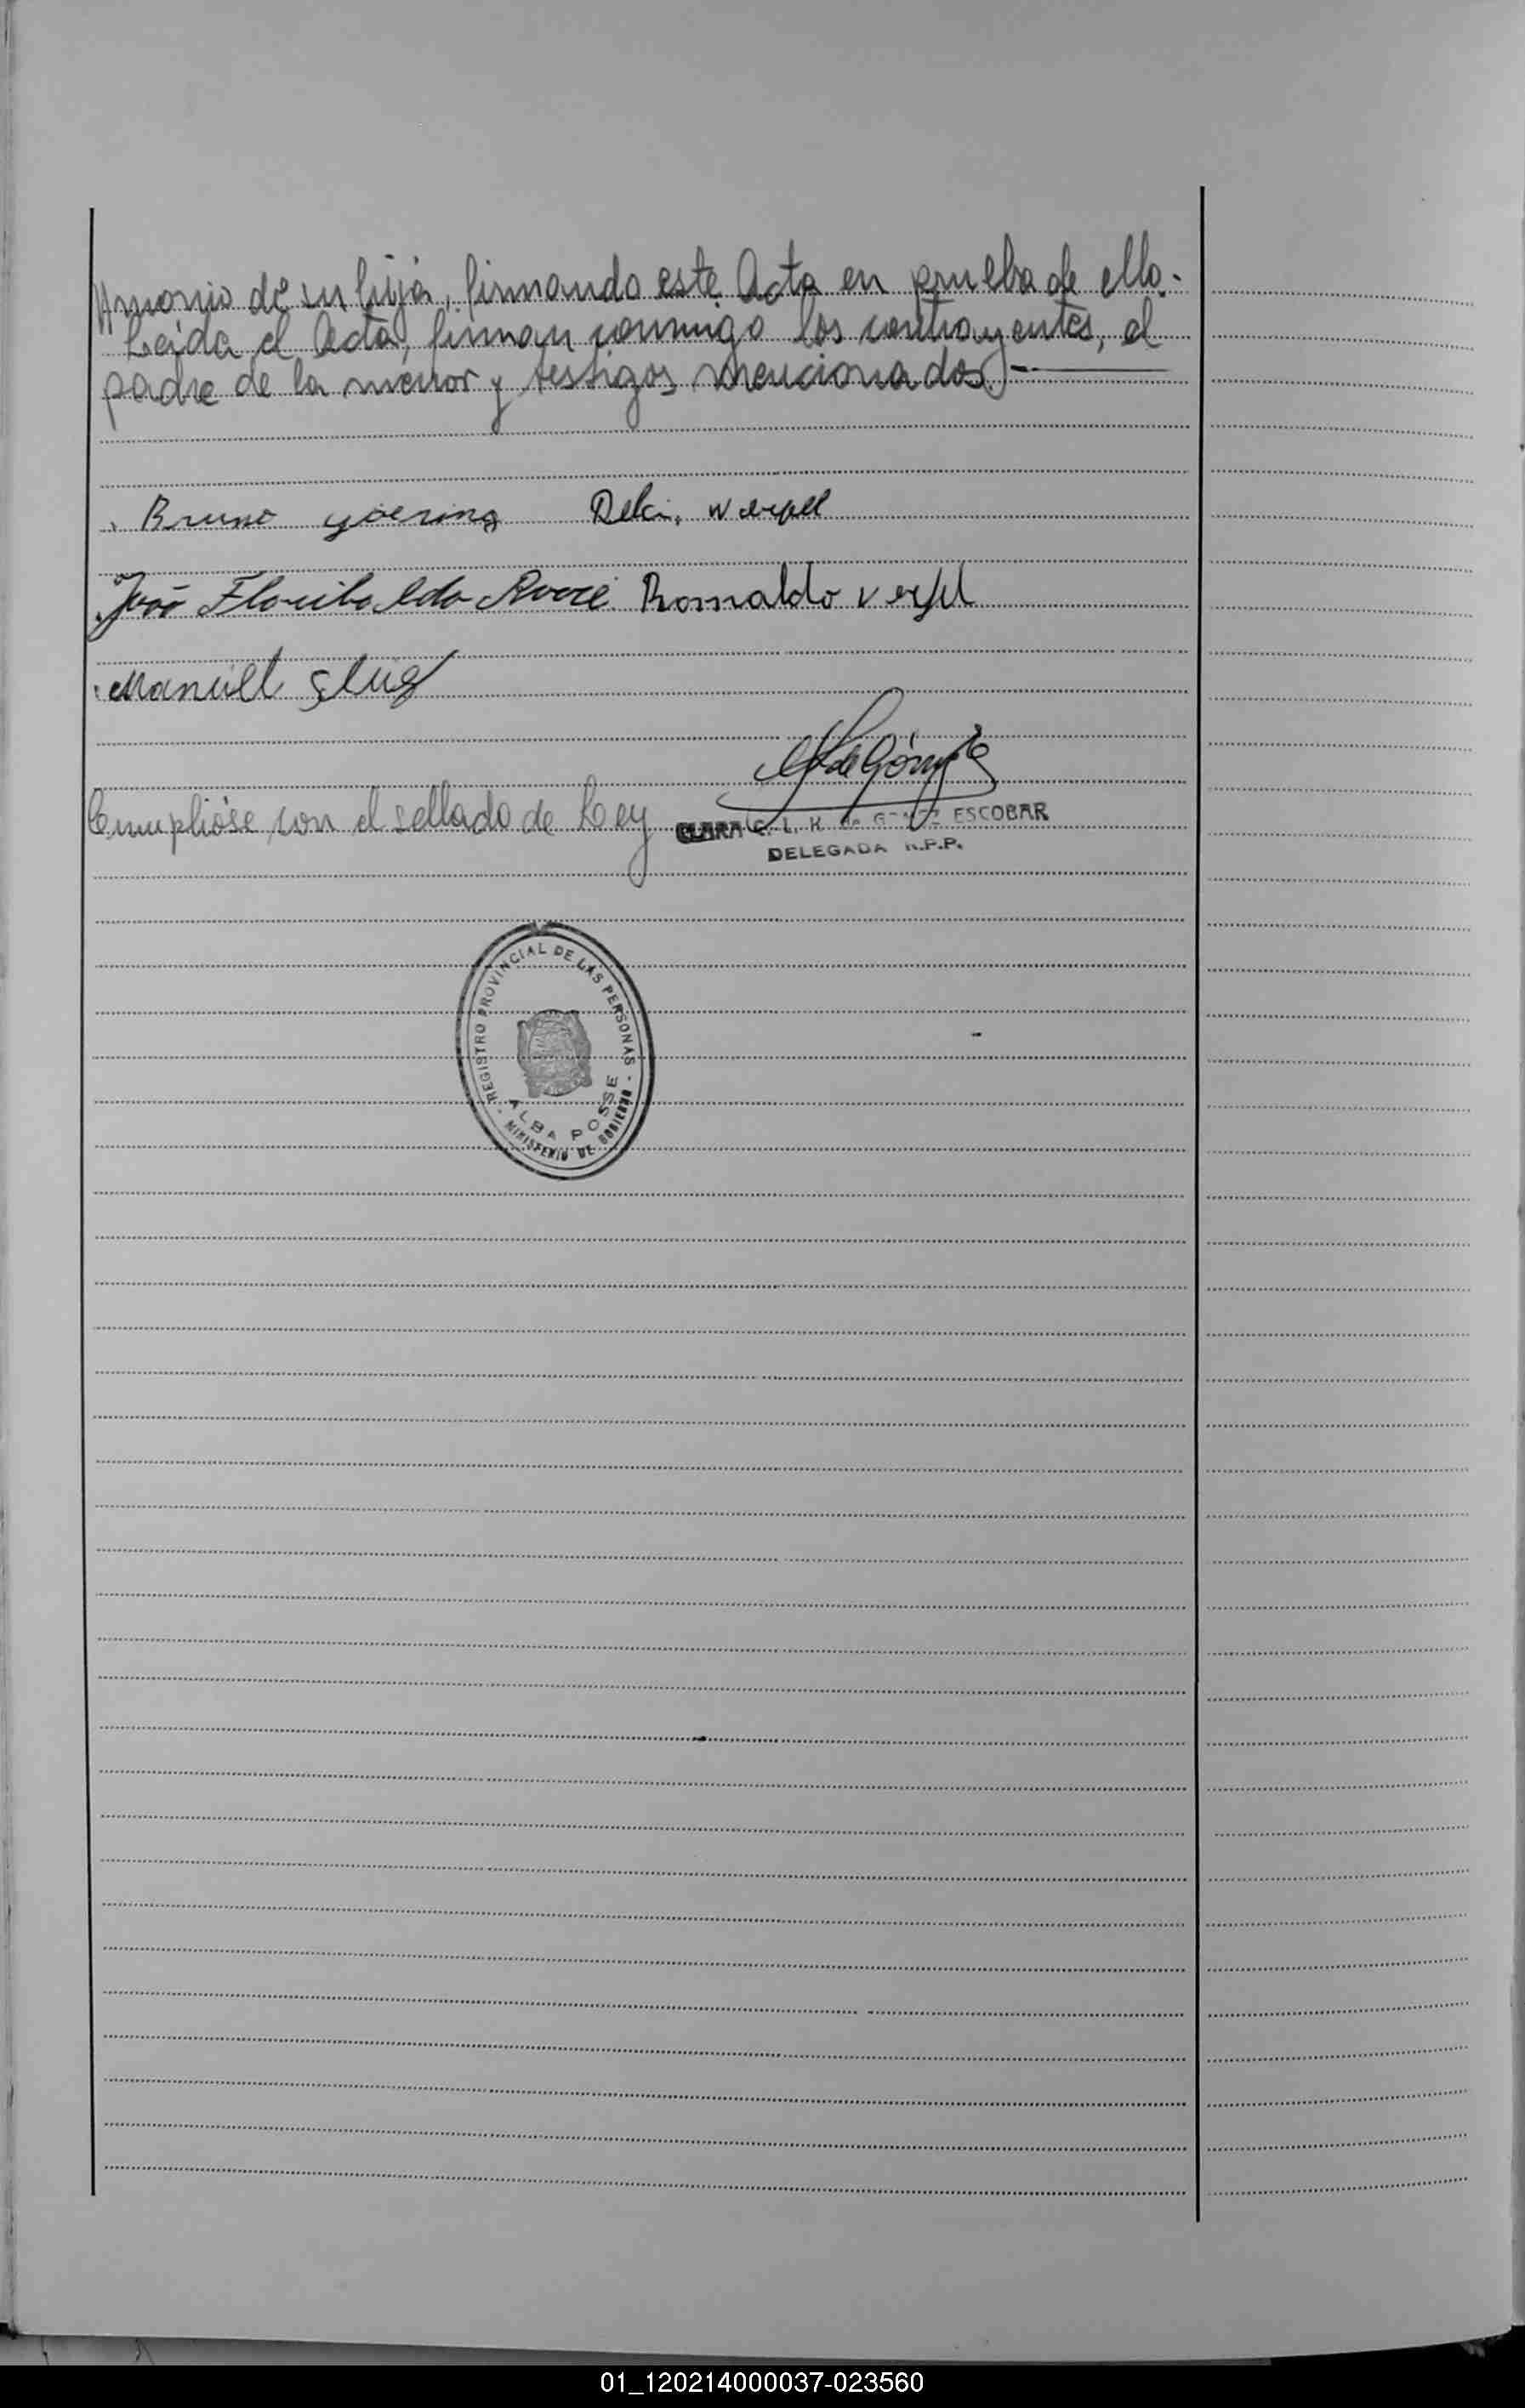 trimonio de su hija, firmando este Acta en prueba de ello.-
Leida el Acta, firman conmigo los contrayentes, el
padre de la menor y testigos mencionados.-
Bruno goering Delci. werfel
João Romaldo verfel
Manuel
de Gómez
Cumplióse con el sellado de Ley
CLARA C. L. K. de GOMEZ ESCOBAR
DELEGADA R.P.P.
- REGISTRO PROVINCIAL DE LAS PERSONAS -
ALBA POSSE
MINISTERIO DE GOBIERNO
01_120214000037-023560